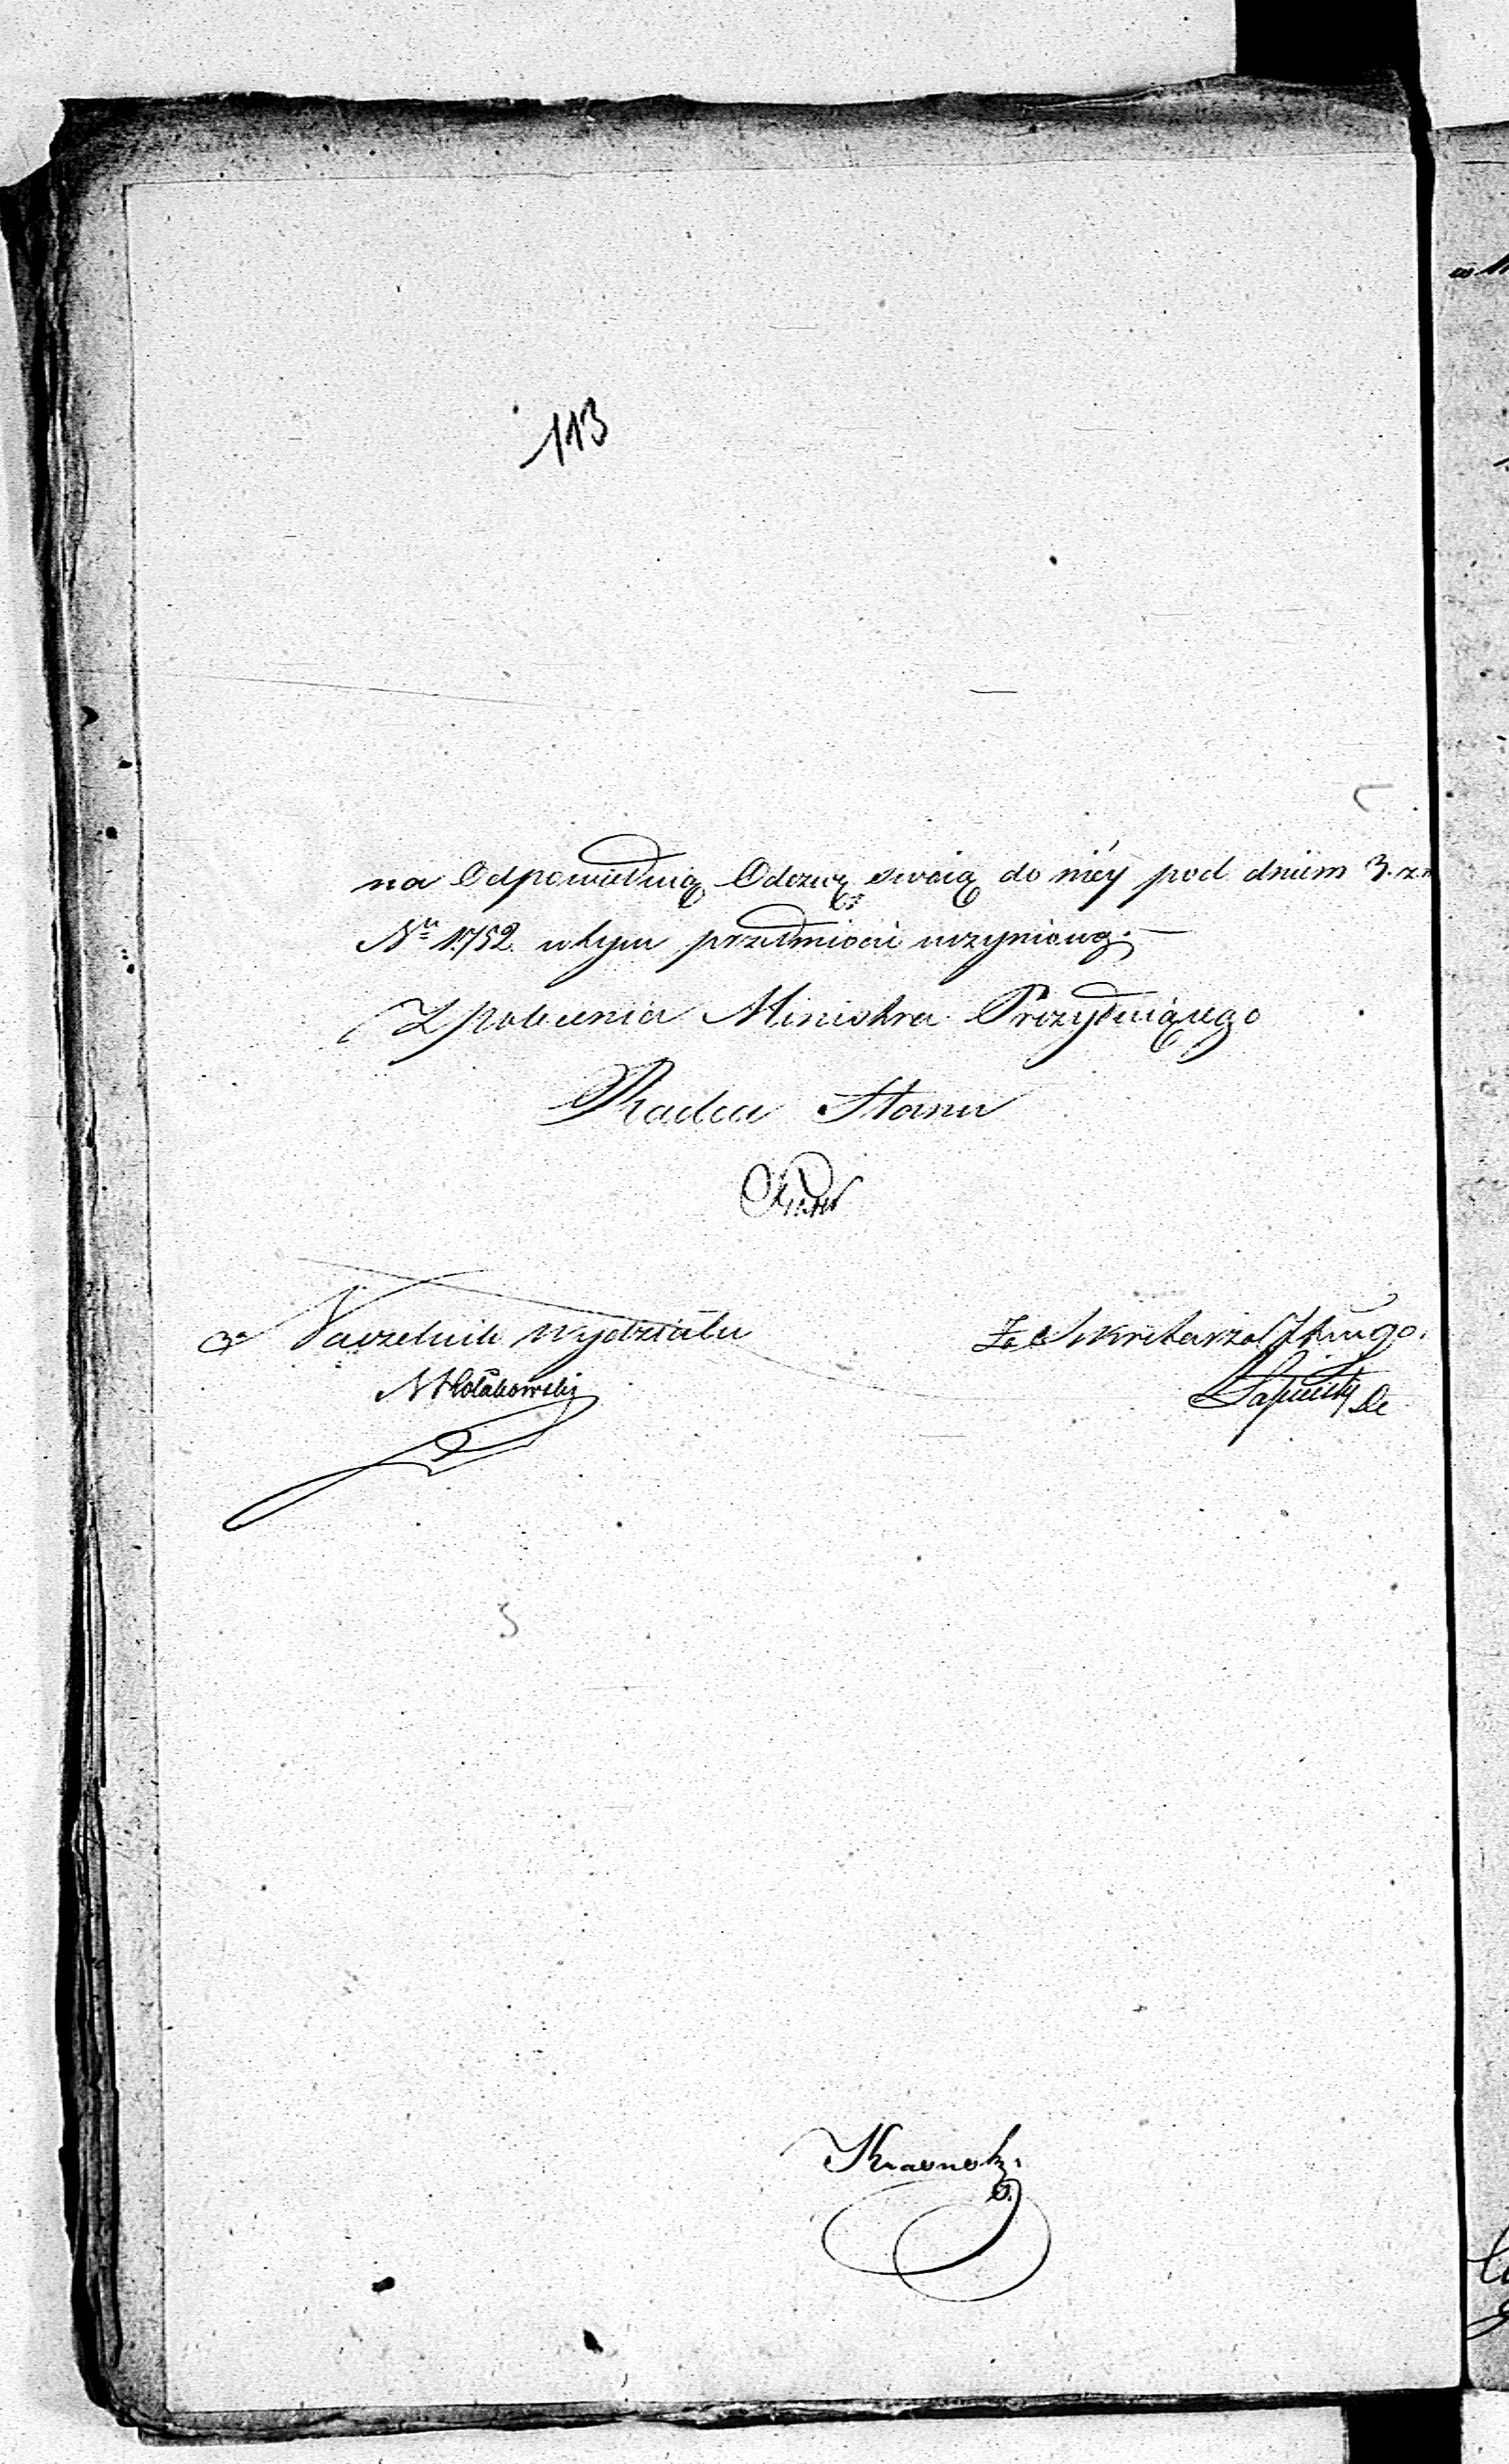 113
na Odpowiednią Odezwę swoią do niéy pod dniem 3. z. m
Nro 1752. w tym przedmiocie uczynioną.
Z polecenia Ministra Prezyduiącego
Radca Stanu
Naczelnik Wydziału
Za Sekretarza Jlnego.